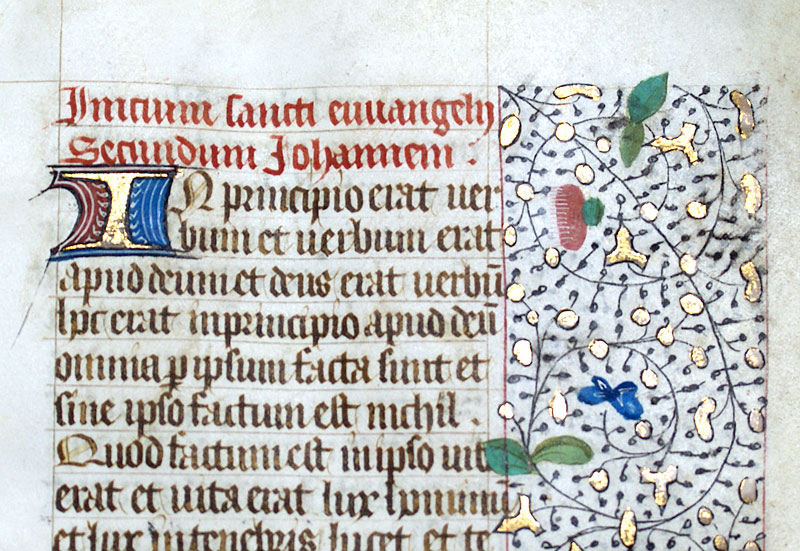 Inicium sancti euuangelij
Secundum Johannem :
IN principio erat uer
bum et uerbum erat
apud deum et deus erat uerbū
hoc erat in principio apud deū
omnia ꝑ ipsum facta sunt et
sine ipso factum est nichil .
Quod factum est in ipso uita
erat et uita erat lux hominū
et lux in tenebris lucet et te